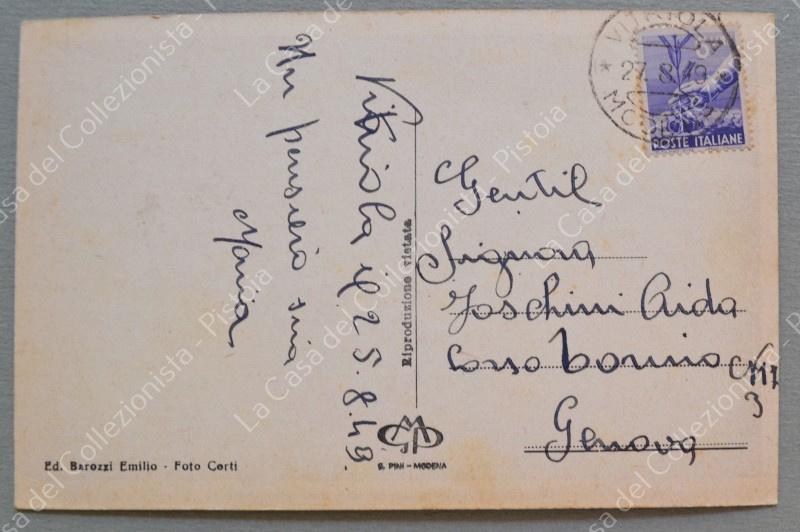 VITRIOLA
27.8.49
MODENA
POSTE ITALIANE
Vitriola il 25.8.49
Un pensiero
Maria
Gentil
Signora
Foschini Aida
Corso Torino
3
Genova
Riproduzione vietata
S. PINI - MODENA
Ed. Barozzi Emilio - Foto Corti
La Casa del Collezionista - Pistoia